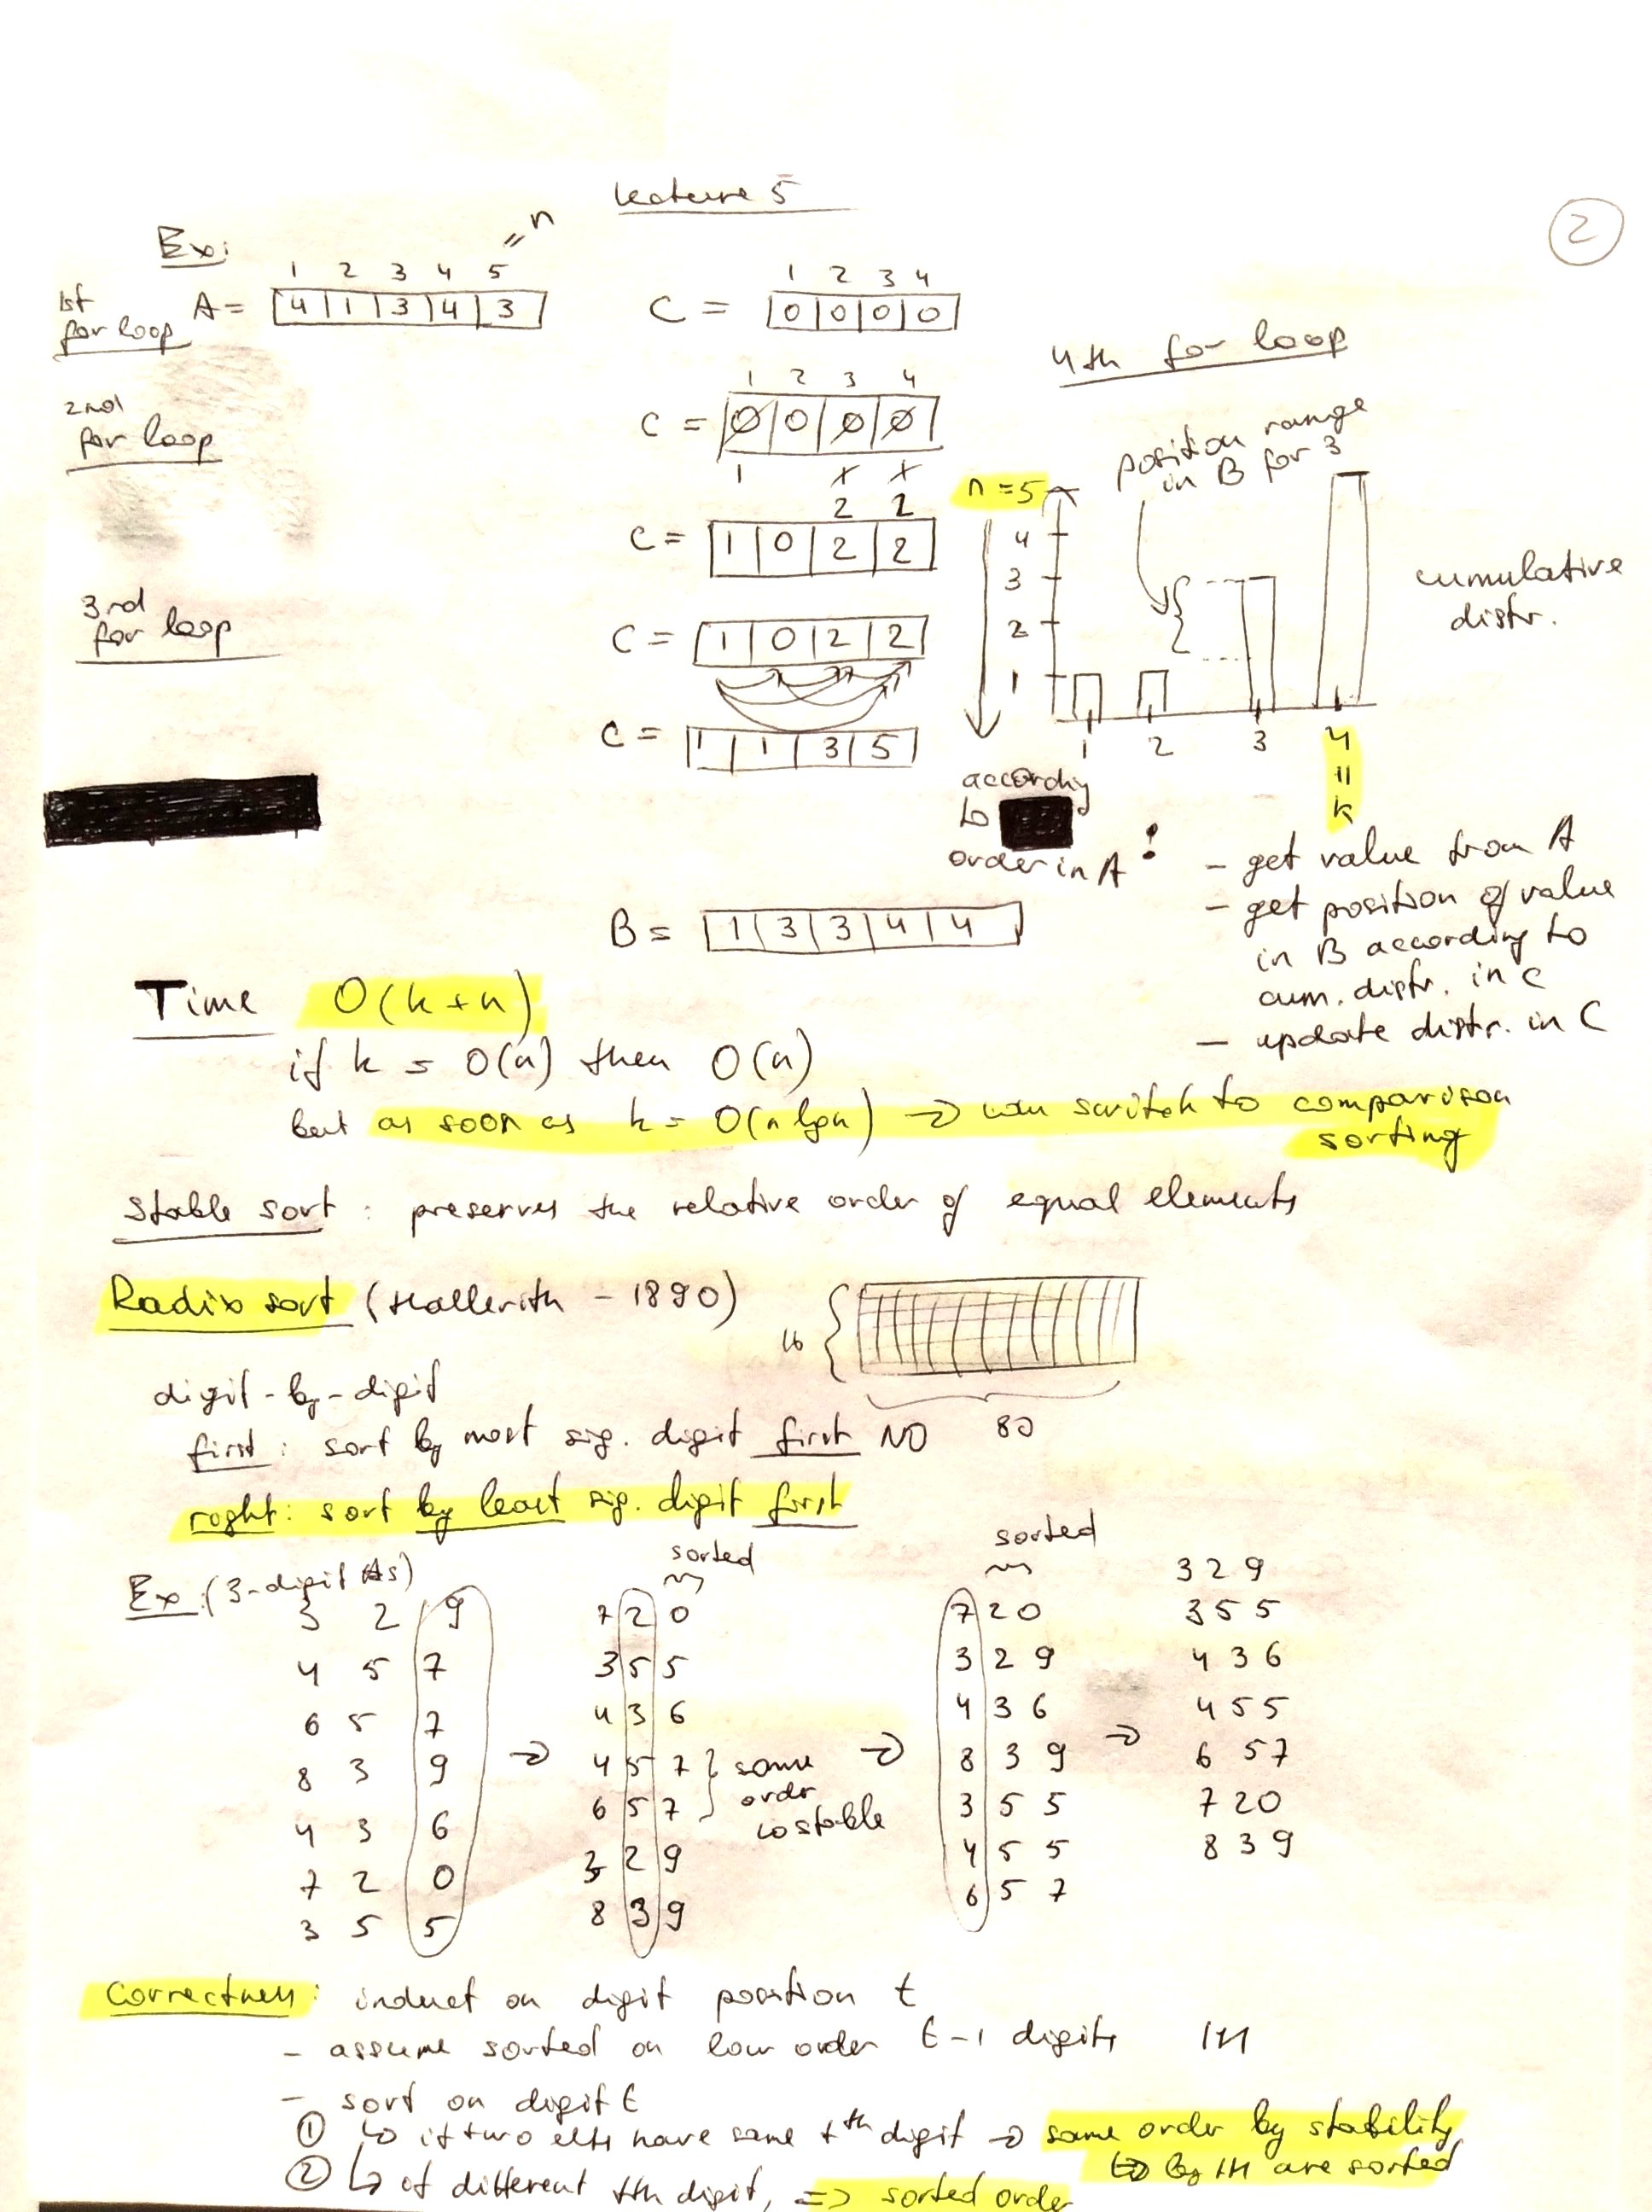 Lecture 5
2
Ex:
= n
1 2 3 4 5
1st for loop
A = 4 | 1 | 3 | 4 | 3
1 2 3 4
C = 0 | 0 | 0 | 0
2nd for loop
1 2 3 4
C = 0 | 0 | 0 | 0
1 1 1
2 2
C = 1 | 0 | 2 | 2
3rd for loop
C = 1 | 0 | 2 | 2
C = 1 | 1 | 3 | 5
4th for loop
position range
in B for 3
n = 5
4
3
2
1
1 2 3 4
=
k
cumulative
distr.
according
to
order in A !
- get value from A
- get position of value
in B according to
cum. distr. in C
- update distr. in C
B = 1 | 3 | 3 | 4 | 4
Time O(k+n)
if k = O(n) then O(n)
but as soon as k = O(n lgn) → can switch to comparison
sorting
Stable sort : preserves the relative order of equal elements
Radix sort (Hollerith - 1890)
16
80
digit-by-digit
first : sort by most sig. digit first NO
right : sort by least sig. digit first
Ex. (3-digit #s)
3 2 9
4 5 7
6 5 7
8 3 9
4 3 6
7 2 0
3 5 5
→
sorted
7 2 0
3 5 5
4 3 6
4 5 7
6 5 7
3 2 9
8 3 9
same
order
stable
→
sorted
7 2 0
3 2 9
4 3 6
8 3 9
3 5 5
4 5 5
6 5 7
→
3 2 9
3 5 5
4 3 6
4 5 5
6 5 7
7 2 0
8 3 9
Correctness : induct on digit position t
- assume sorted on low order t-1 digits IH
- sort on digit t
① ↳ if two elts have same tth digit → same order by stability
⇒ by IH are sorted
② ↳ if different tth digit, => sorted order